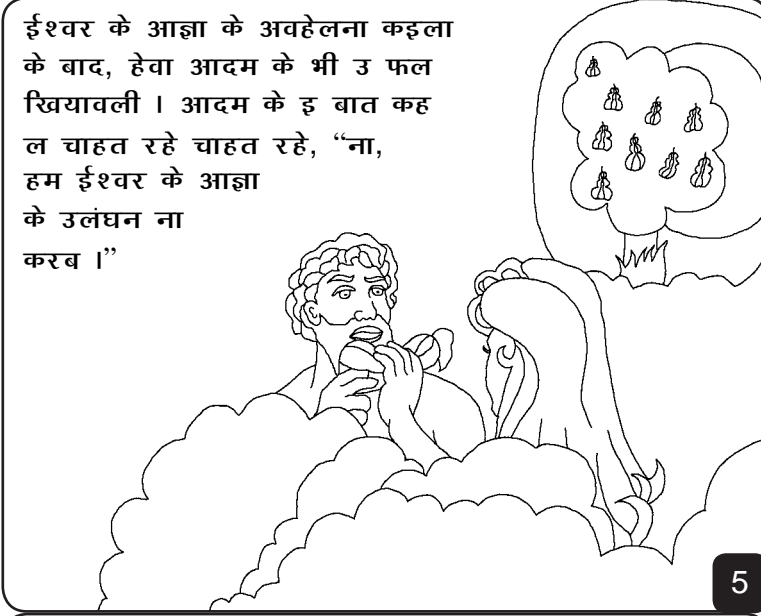 ईश्वर के आज्ञा के अवहेलना कइला
के बाद, हेवा आदम के भी उ फल
खियावली । आदम के इ बात कह
ल चाहत रहे चाहत रहे, “ना,
हम ईश्वर के आज्ञा
के उलंघन ना
करब ।”
5